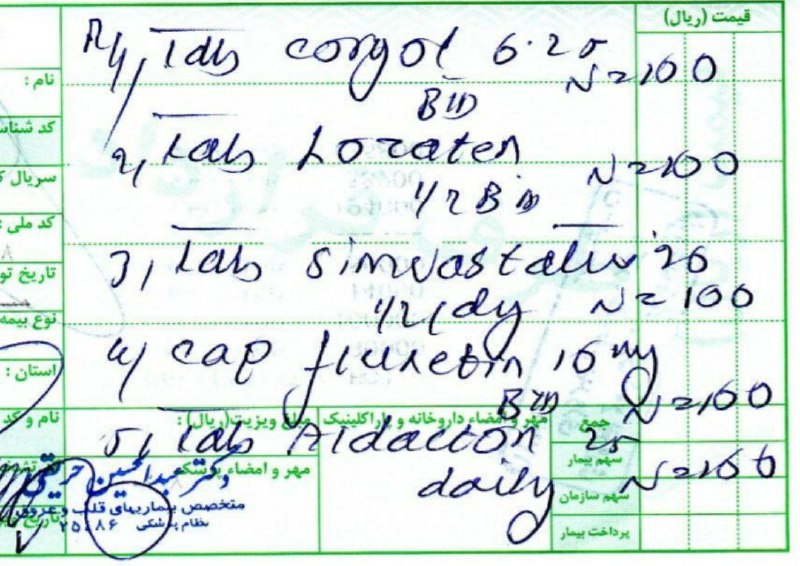 قیمت (ریال)
R/ 1, Tab corgol 6.25
N=100
BID
نام :
2, Tab Lozaten
کد شناس
N=100
1/2 BID
سریال
کد ملی :
3, Tab simvastatin 20
تاریخ تو
1/2 / dy N=100
نوع بیمه
4/ cap fluxetin 10 mg
استان :
BID N=100
نام و کد
مبلغ ویزیت(ریال) :
مهر و امضاء داروخانه و پاراکلینیک
جمع
5, Tab Aldacton 25
سهم بیمار
مهر و امضاء پزشک
daily N=100
سهم سازمان
متخصص بیماریهای قلب و عروق
نظام پزشکی
پرداخت بیمار